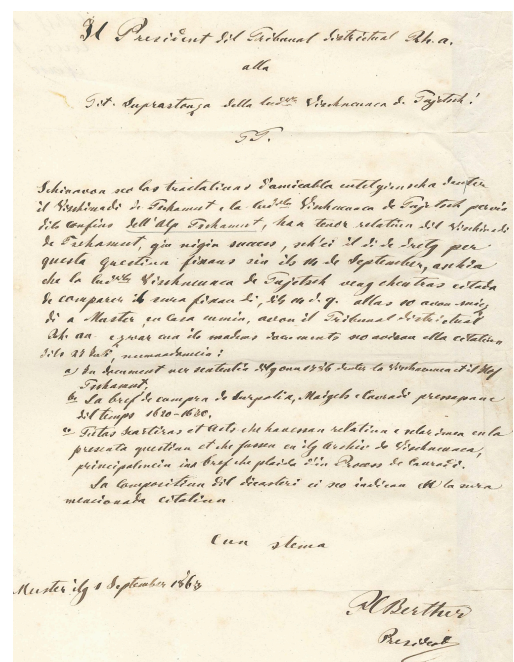 Il President dil Tribunal districtual Rh. a.
alla
Tit. Suprastonza della lud. Vischnaunca de Tujetsch!
TT.
Schinavon sco las tractativas d'amicabla entelgienscha denter
il Vischinadi de Tschamut e la lud. Vischnaunca de Tujetsch pervia
dils confins dell' Alp Tschamut, han tenor relatiun dil Vischinadi
de Tschamut, giu nigin success, sch'ei il di de dretg per
questa questiun finaus sin ils 14 de September, aschia
che la lud. Vischnaunca de Tujetsch veng cheutras citada
de comparer il sura finau di, dils 14 d. q. allas 10 avon miez
di a Muster, en Casa cumin, avon il Tribunal districtual
Rh. an. e zvar cun ils medems documents sco avisau ella citatiun
dils 23 numnadamein:
a) In document ver sentenzia dilg onn 1836 denter la Vischnaunca et il Hof
Tschamut.
b) La bref de compra de Surpalix, Maigels e Cavradi
dil temps 1620-1630.
c) Tuttas scartiras et Acts che han enan relatiun e relaschan en la
presenta questiun et che fussen en ilg Archiv de Vischnaunca,
principalmein ina bref che plaida d'in Process de Cavradi.
La compositiun dil dicasteri ei sco indicau ella sura
menzionada citatiun
Cun stema
Muster ilg 1 September 1863
Berther
President